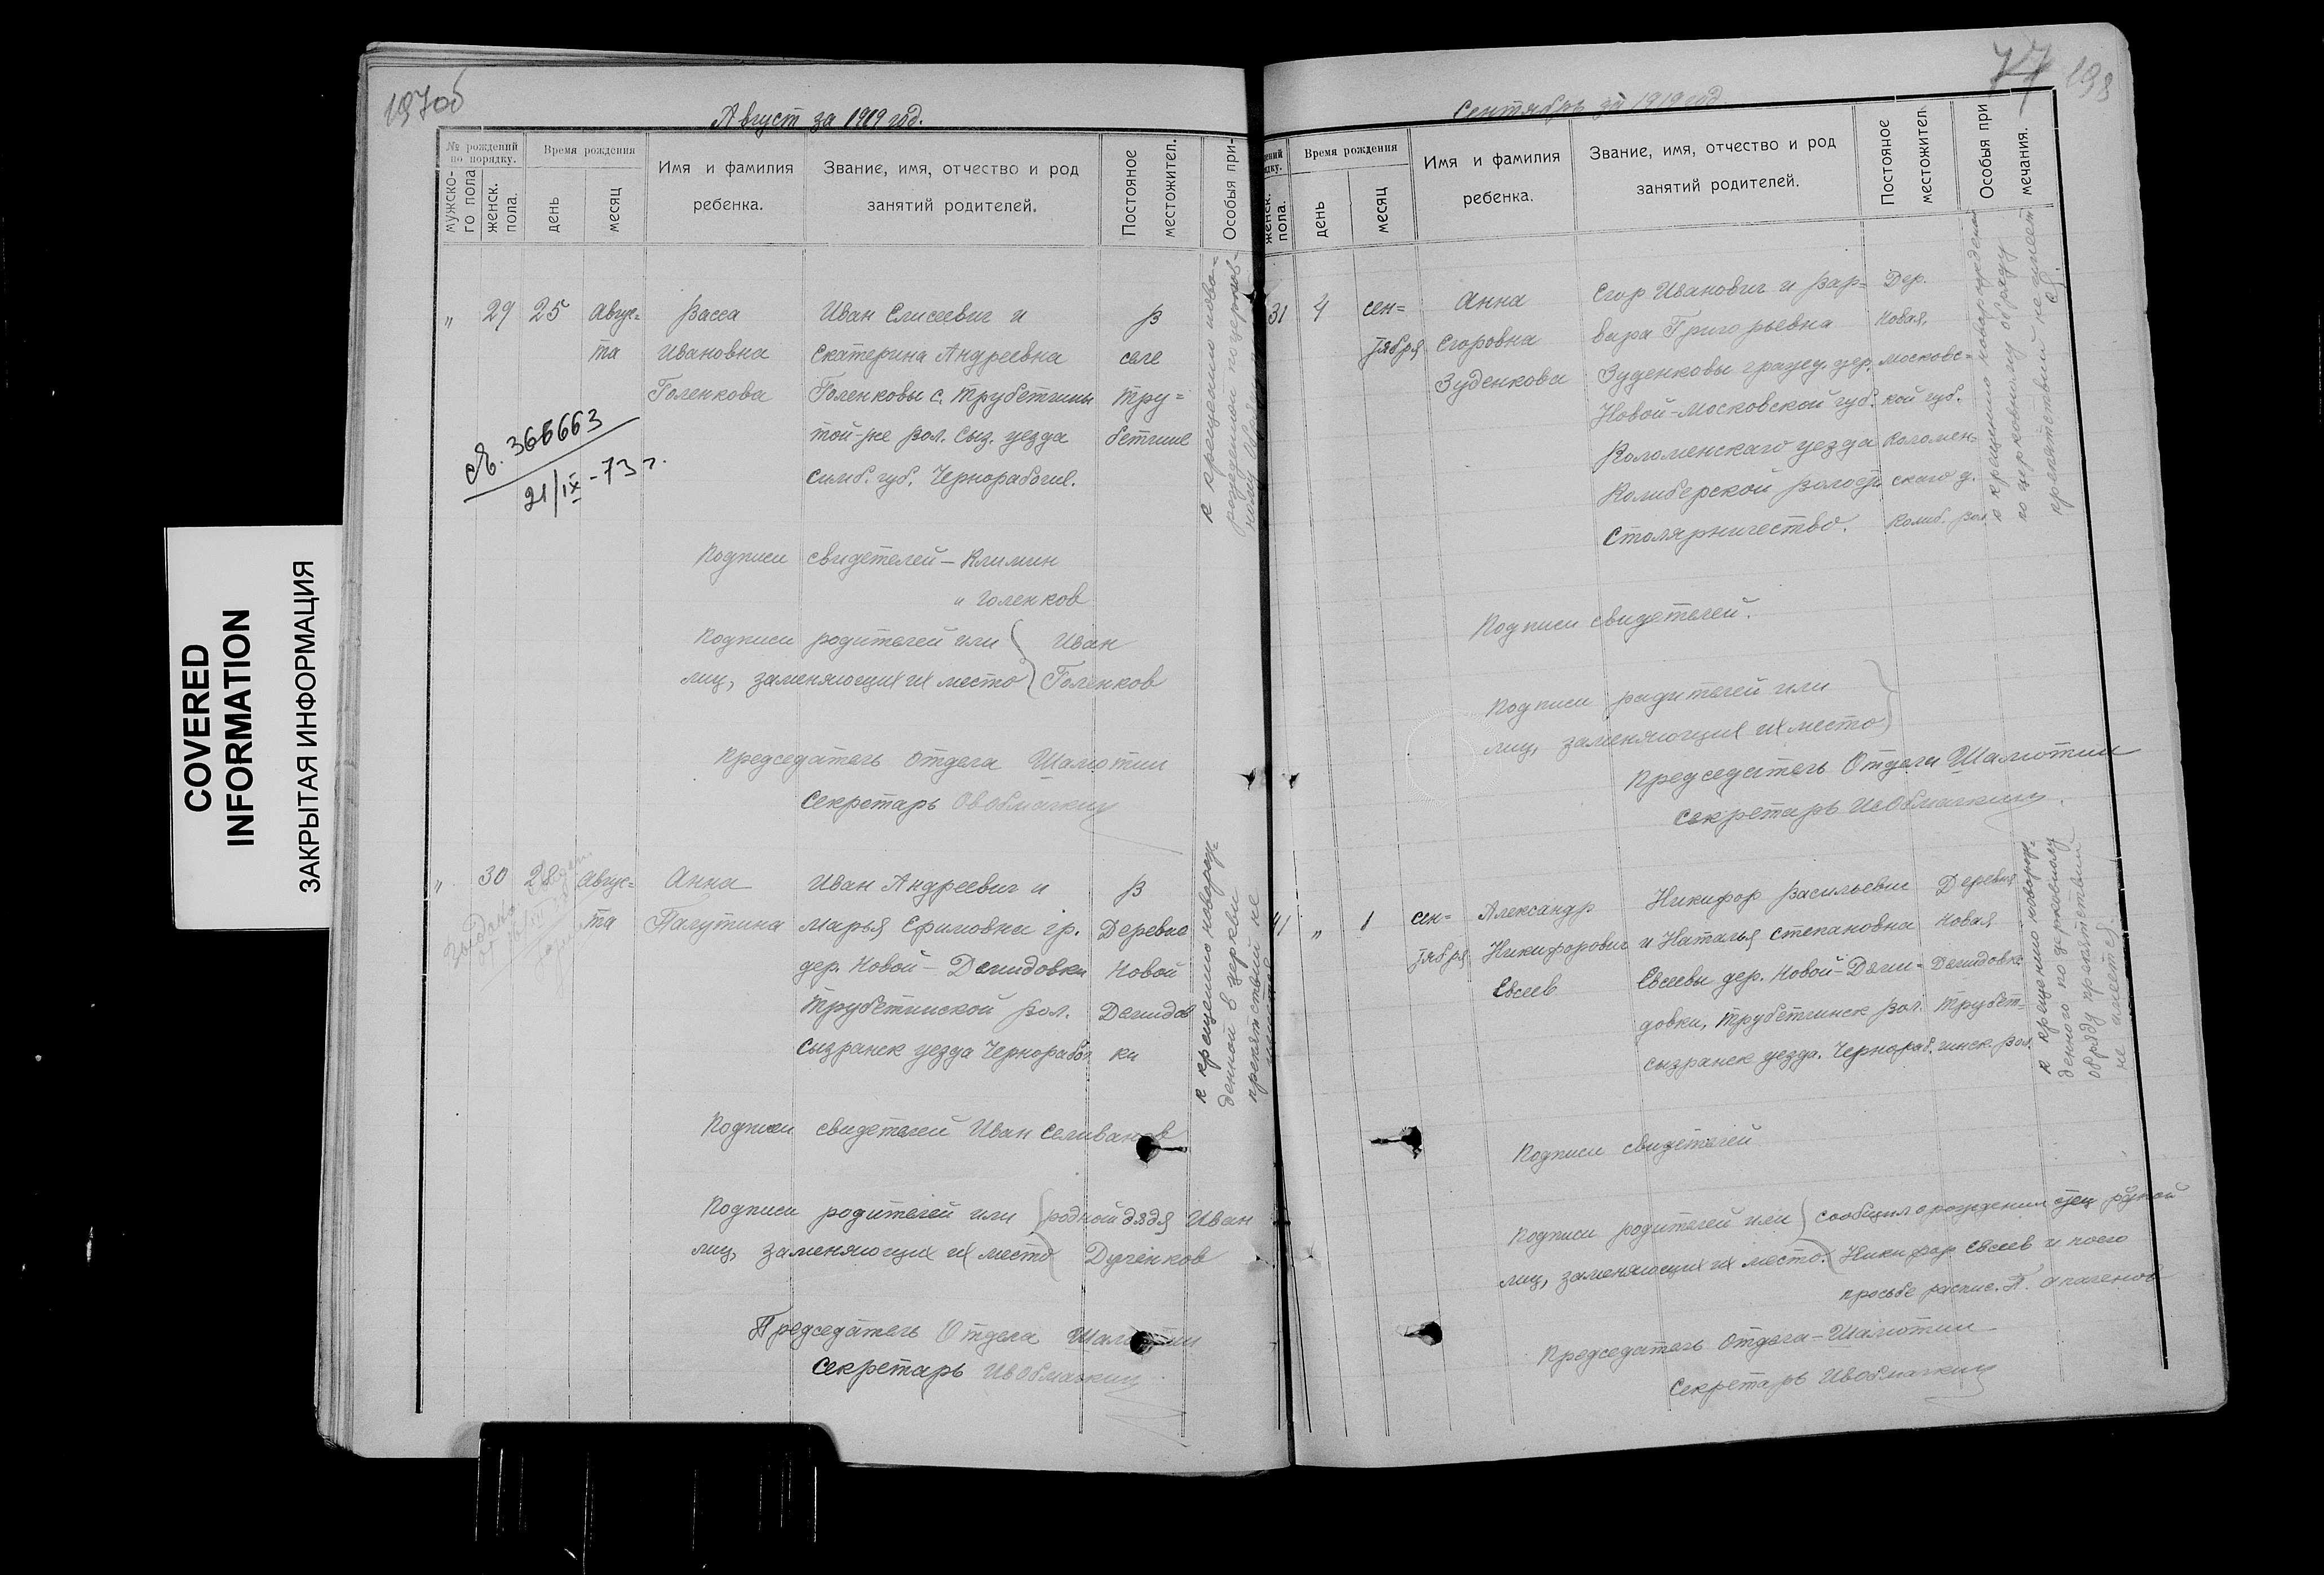 COVERED
INFORMATION
ЗАКРЫТАЯ ИНФОРМАЦИЯ
197об
Август за 1919 год.
№ рождений по порядку.
Время рождения
мужско-го пола
женск. пола.
день
месяц
Имя и фамилия
ребенка.
Звание, имя, отчество и род
занятий родителей.
Постояное
местожител.
Особыя при-
" 29 25 Авгус= Васса Иван Елисеевич и В
та Ивановна Екатерина Андреевна селе
Голенкова Голенковы с. Трубетчины Тру=
той-же вол. Сыз. уезда бетчине
Симб. губ. Чернорабочие.
366663
21/IX-73 г.
Подписи свидетелей – Климин
" Голенков
Подписи родителей или Иван
лиц, заменяющих их место Голенков
Председатель Отдела Шалютин
Секретарь
" 30 28 Авгус= Анна Иван Андреевич и В
та Марья Ефимовна гр. Деревне
дер. Новой – Демидовки Новой
Трубетчинской вол. Демидов
Сызранск уезда Чернорабоч ки
к крещению новорож-
денной в церкви
препятствий не
Подписи свидетелей Иван Селиванов
Подписи родителей или родной дядя Иван
лиц, заменяющих их место
Председатель Отдела Шалютин
Секретарь
77 198
Сентябрь за 1919 год.
Время рождения
женск. пола.
день
месяц
Имя и фамилия
ребенка.
Звание, имя, отчество и род
занятий родителей.
Постояное
местожител.
Особыя при
мечания.
31 4 сен= Анна Егор Иванович и Вар= Дер.
тября Егоровна вара Григорьевна Новая,
Зуденкова Зуденковы гражд. дер. Московс=
Новой-Московской губ. кой губ.
Коломенскаго уезда Коломен=
Колиберской волости скаго у.
Столярничество. Колиб. вол.
к крещению новорожденной
по церковному обряду
препятствий не имеет
ся.
Подписи свидетелей.
Подписи родителей или
лиц, заменяющих их место
Председатель Отдела Шалютин
Секретарь
41 " 1 сен= Александр Никифор Васильевич Деревня
тября Никифорович и Наталья Степановна Новая
Евсеев Евсеевы дер. Новой-Деми= Демидовка
довки, Трубетчинск вол. Трубет=
Сызранск уезда. Чернораб. чинск. вол.
к крещению новорож-
денного по церковному
обряду препятствий
не имеется.
Подписи свидетелей
Подписи родителей или сообщил о рождении отец родной
лиц, заменяющих их место. Никифор Евсеев и по его
просьбе распис.
Председатель Отдела – Шалютин
Секретарь